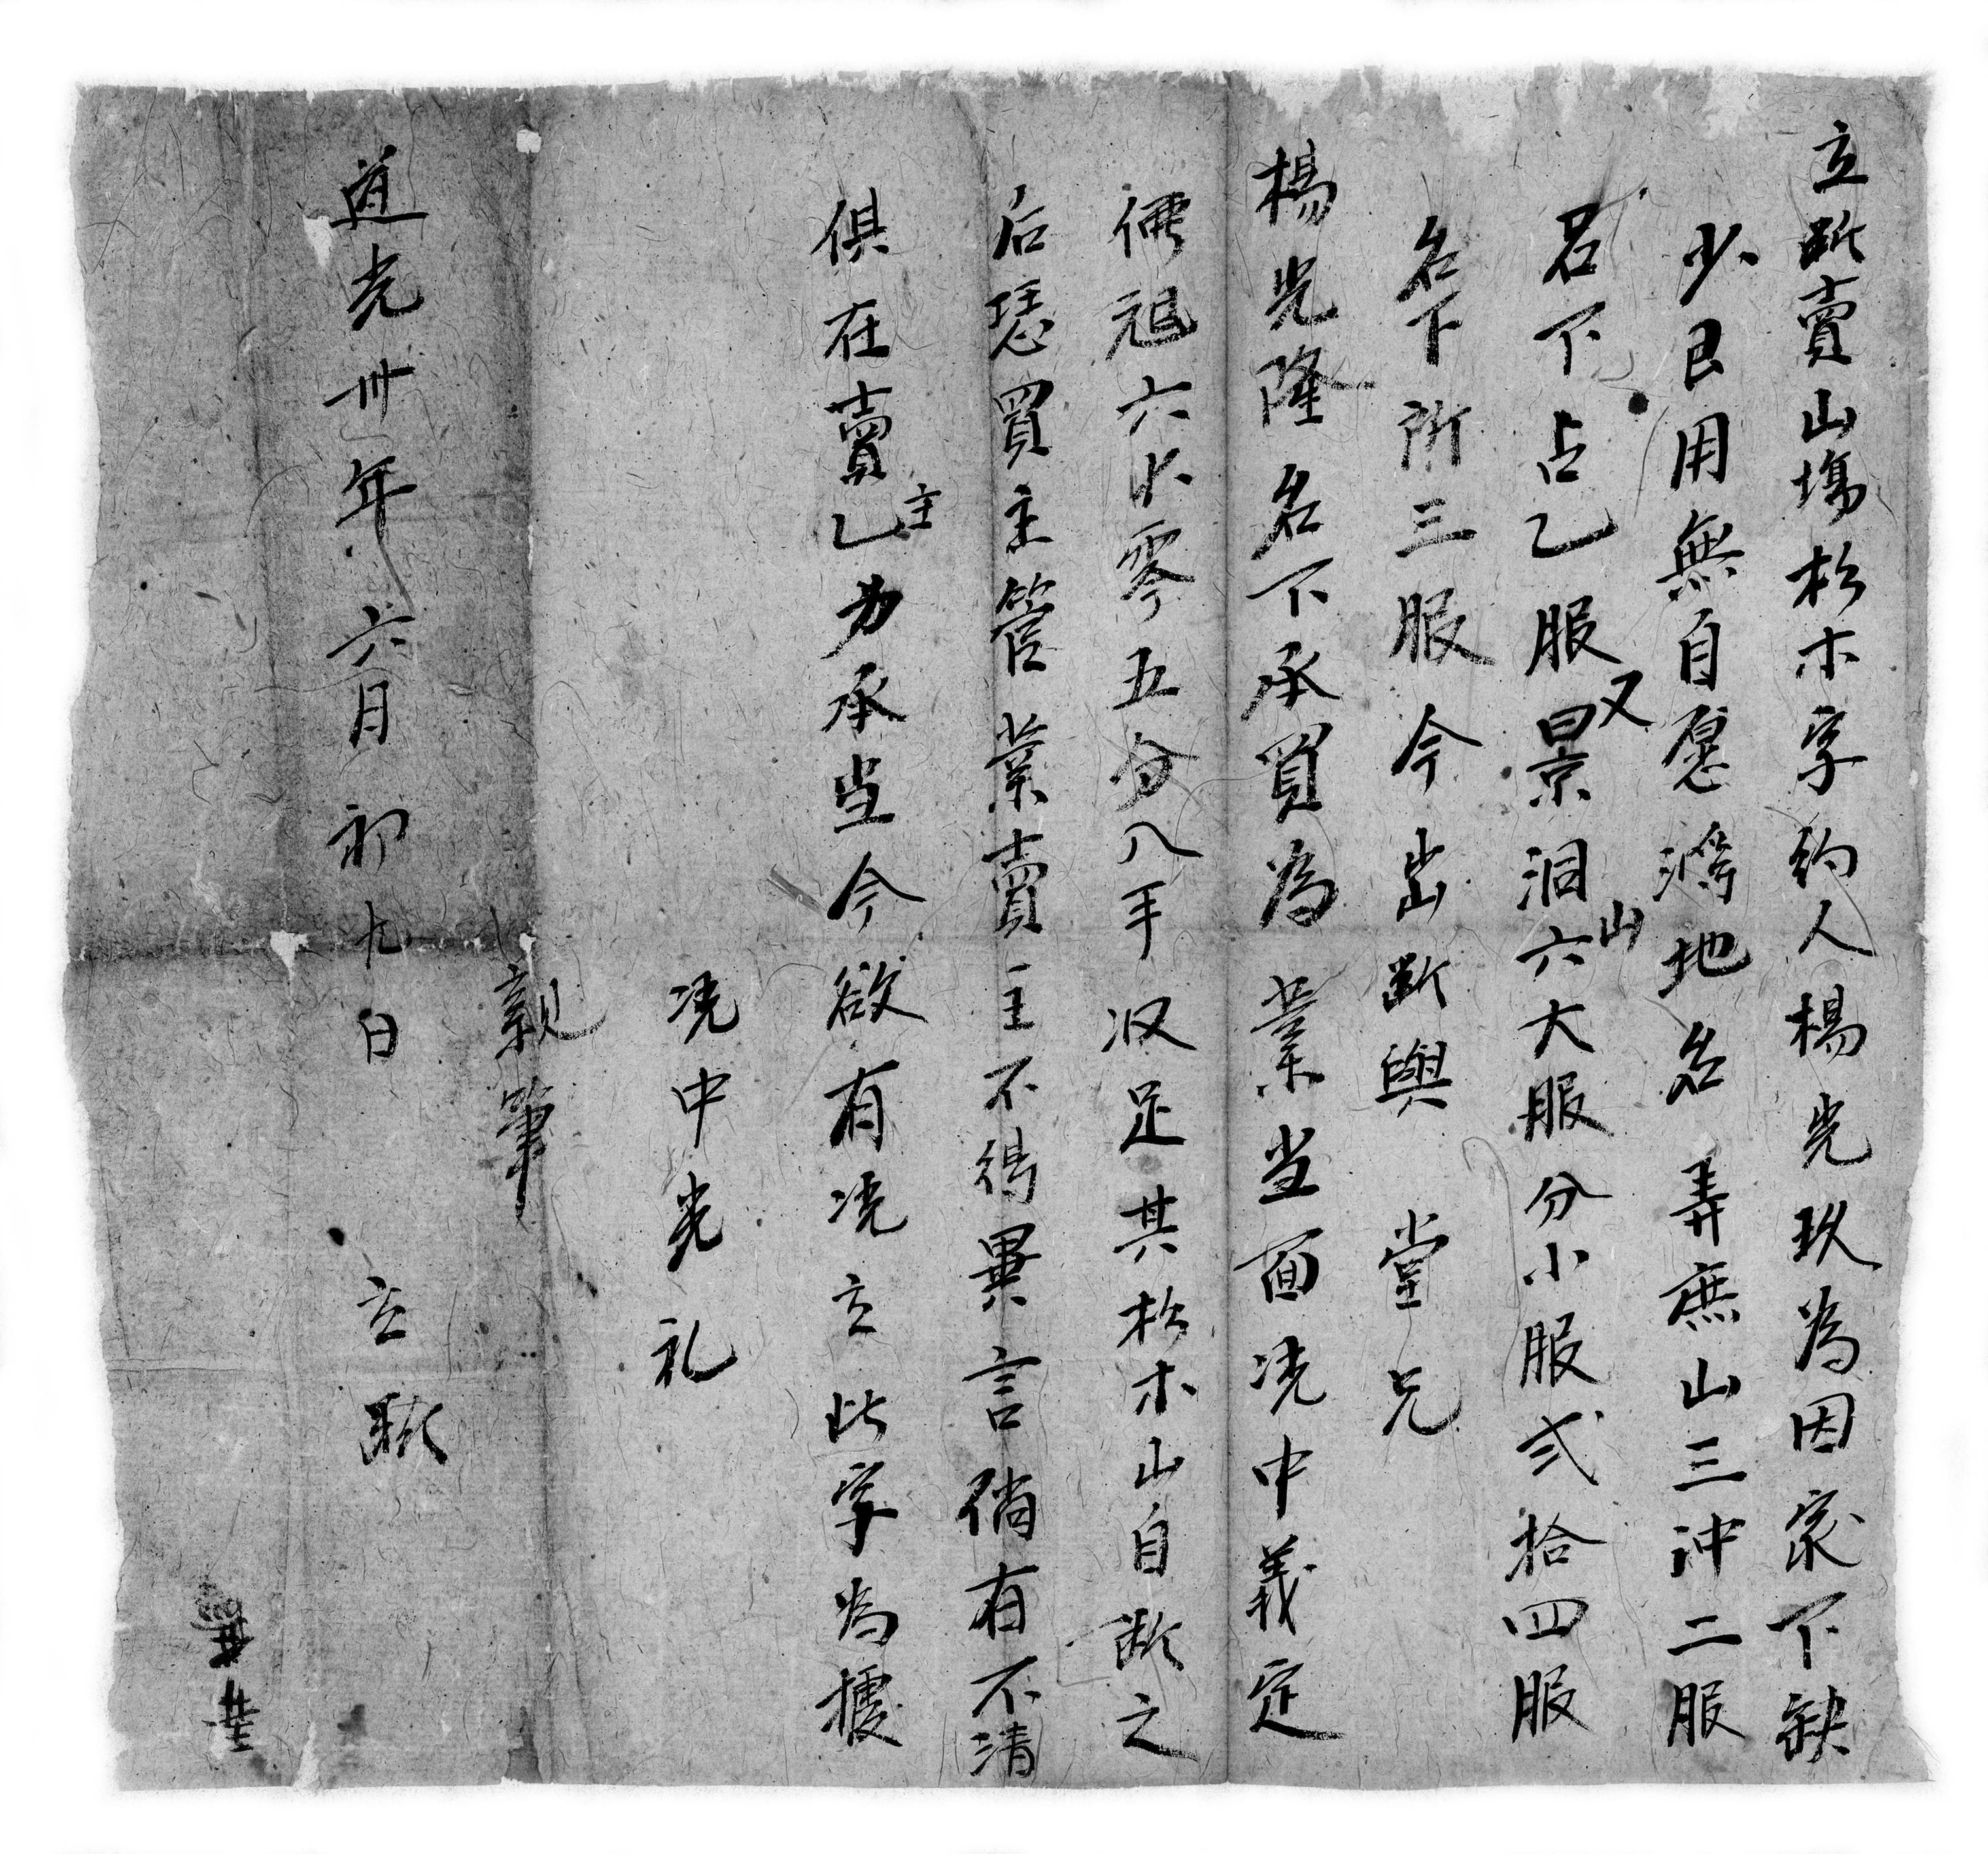 立断賣山塲杉木字約人楊光玖為因家下缺
少艮用無自愿灣地名弄庶山三冲二服
名下占乙服又景洞山六大服分小服弍拾四服
名下所三服今出断與堂兄
楊光隆名下承買為業当面凴中義定
価艮六水零五分八手収足其杉木山自断之
后凴買主管業賣主不得異言倘有不清
俱在賣主乙为承当今欲有凴立此字為據
凴中光礼
親筆
道光卅年六月初九日立